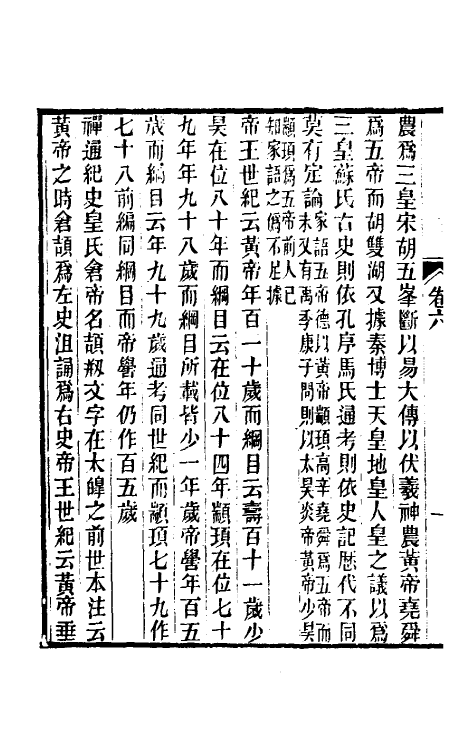 卷六
一
農爲三皇宋胡五峯斷以易大傳以伏羲神農黃帝堯舜
爲五帝而胡雙湖又據秦博士天皇地皇人皇之議以爲
三皇蘇氏古史則依孔序馬氏通考則依史記歷代不同
莫有定論
家語五帝德以黃帝顓頊高辛堯舜爲五帝而
未又有禹季康子問則以太昊炎帝黃帝少昊
顓頊爲五帝前人已
知家語之僞不足據
帝王世紀云黃帝年百一十歲而綱目云壽百十一歲少
昊在位八十年而綱目云在位八十四年顓頊在位七十
九年年九十八歲而綱目所載皆少一年歲帝嚳年百五
歲而綱目云年九十九歲通考同世紀而顓頊七十九作
七十八前編同綱目而帝嚳年仍作百五歲
禪通紀史皇氏倉帝名頡剏文字在太皥之前世本注云
黃帝之時倉頡爲左史沮誦爲右史帝王世紀云黃帝垂